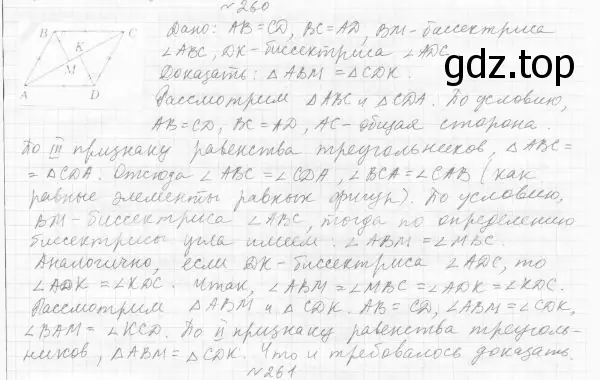 №260
B C K M A D
Дано: AB=CD, BC=AD, BM-биссектриса
∠ABC, DK-биссектриса ∠ADC.
Доказать: △ABM=△CDK.
gdz.top
Рассмотрим △ABC и △CDA. По условию,
AB=CD, BC=AD, AC-общая сторона.
По III признаку равенства треугольников, △ABC=
=△CDA. Отсюда ∠ABC=∠CDA, ∠BCA=∠CAB (как
равные элементы равных фигур). По условию,
BM-биссектриса ∠ABC, тогда по определению
биссектрисы угла имеем: ∠ABM=∠MBC.
Аналогично, если DK-биссектриса ∠ADC, то
∠ADK=∠KDC. Итак, ∠ABM=∠MBC=∠ADK=∠KDC.
Рассмотрим △ABM и △CDK. AB=CD, ∠ABM=∠CDK,
∠BAM=∠KCD. По II признаку равенства треуголь-
ников, △ABM=△CDK. Что и требовалось доказать.
№261